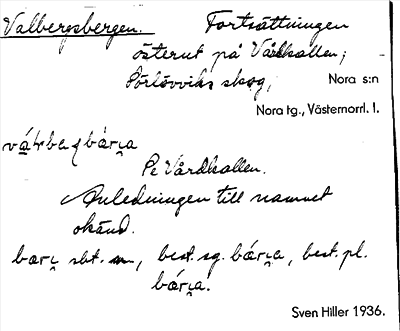 Valbergsbergen. Fortsättningen
österut på Vårdkallen;
skog, Nora s:n
Nora tg., Västernorrl. l.
Pe Vårdkallen.
Anledningen till namnet
okänd.
sbt. m, best. sg. bár̯a, best. pl.
bár̯a.
Sven Hiller 1936.